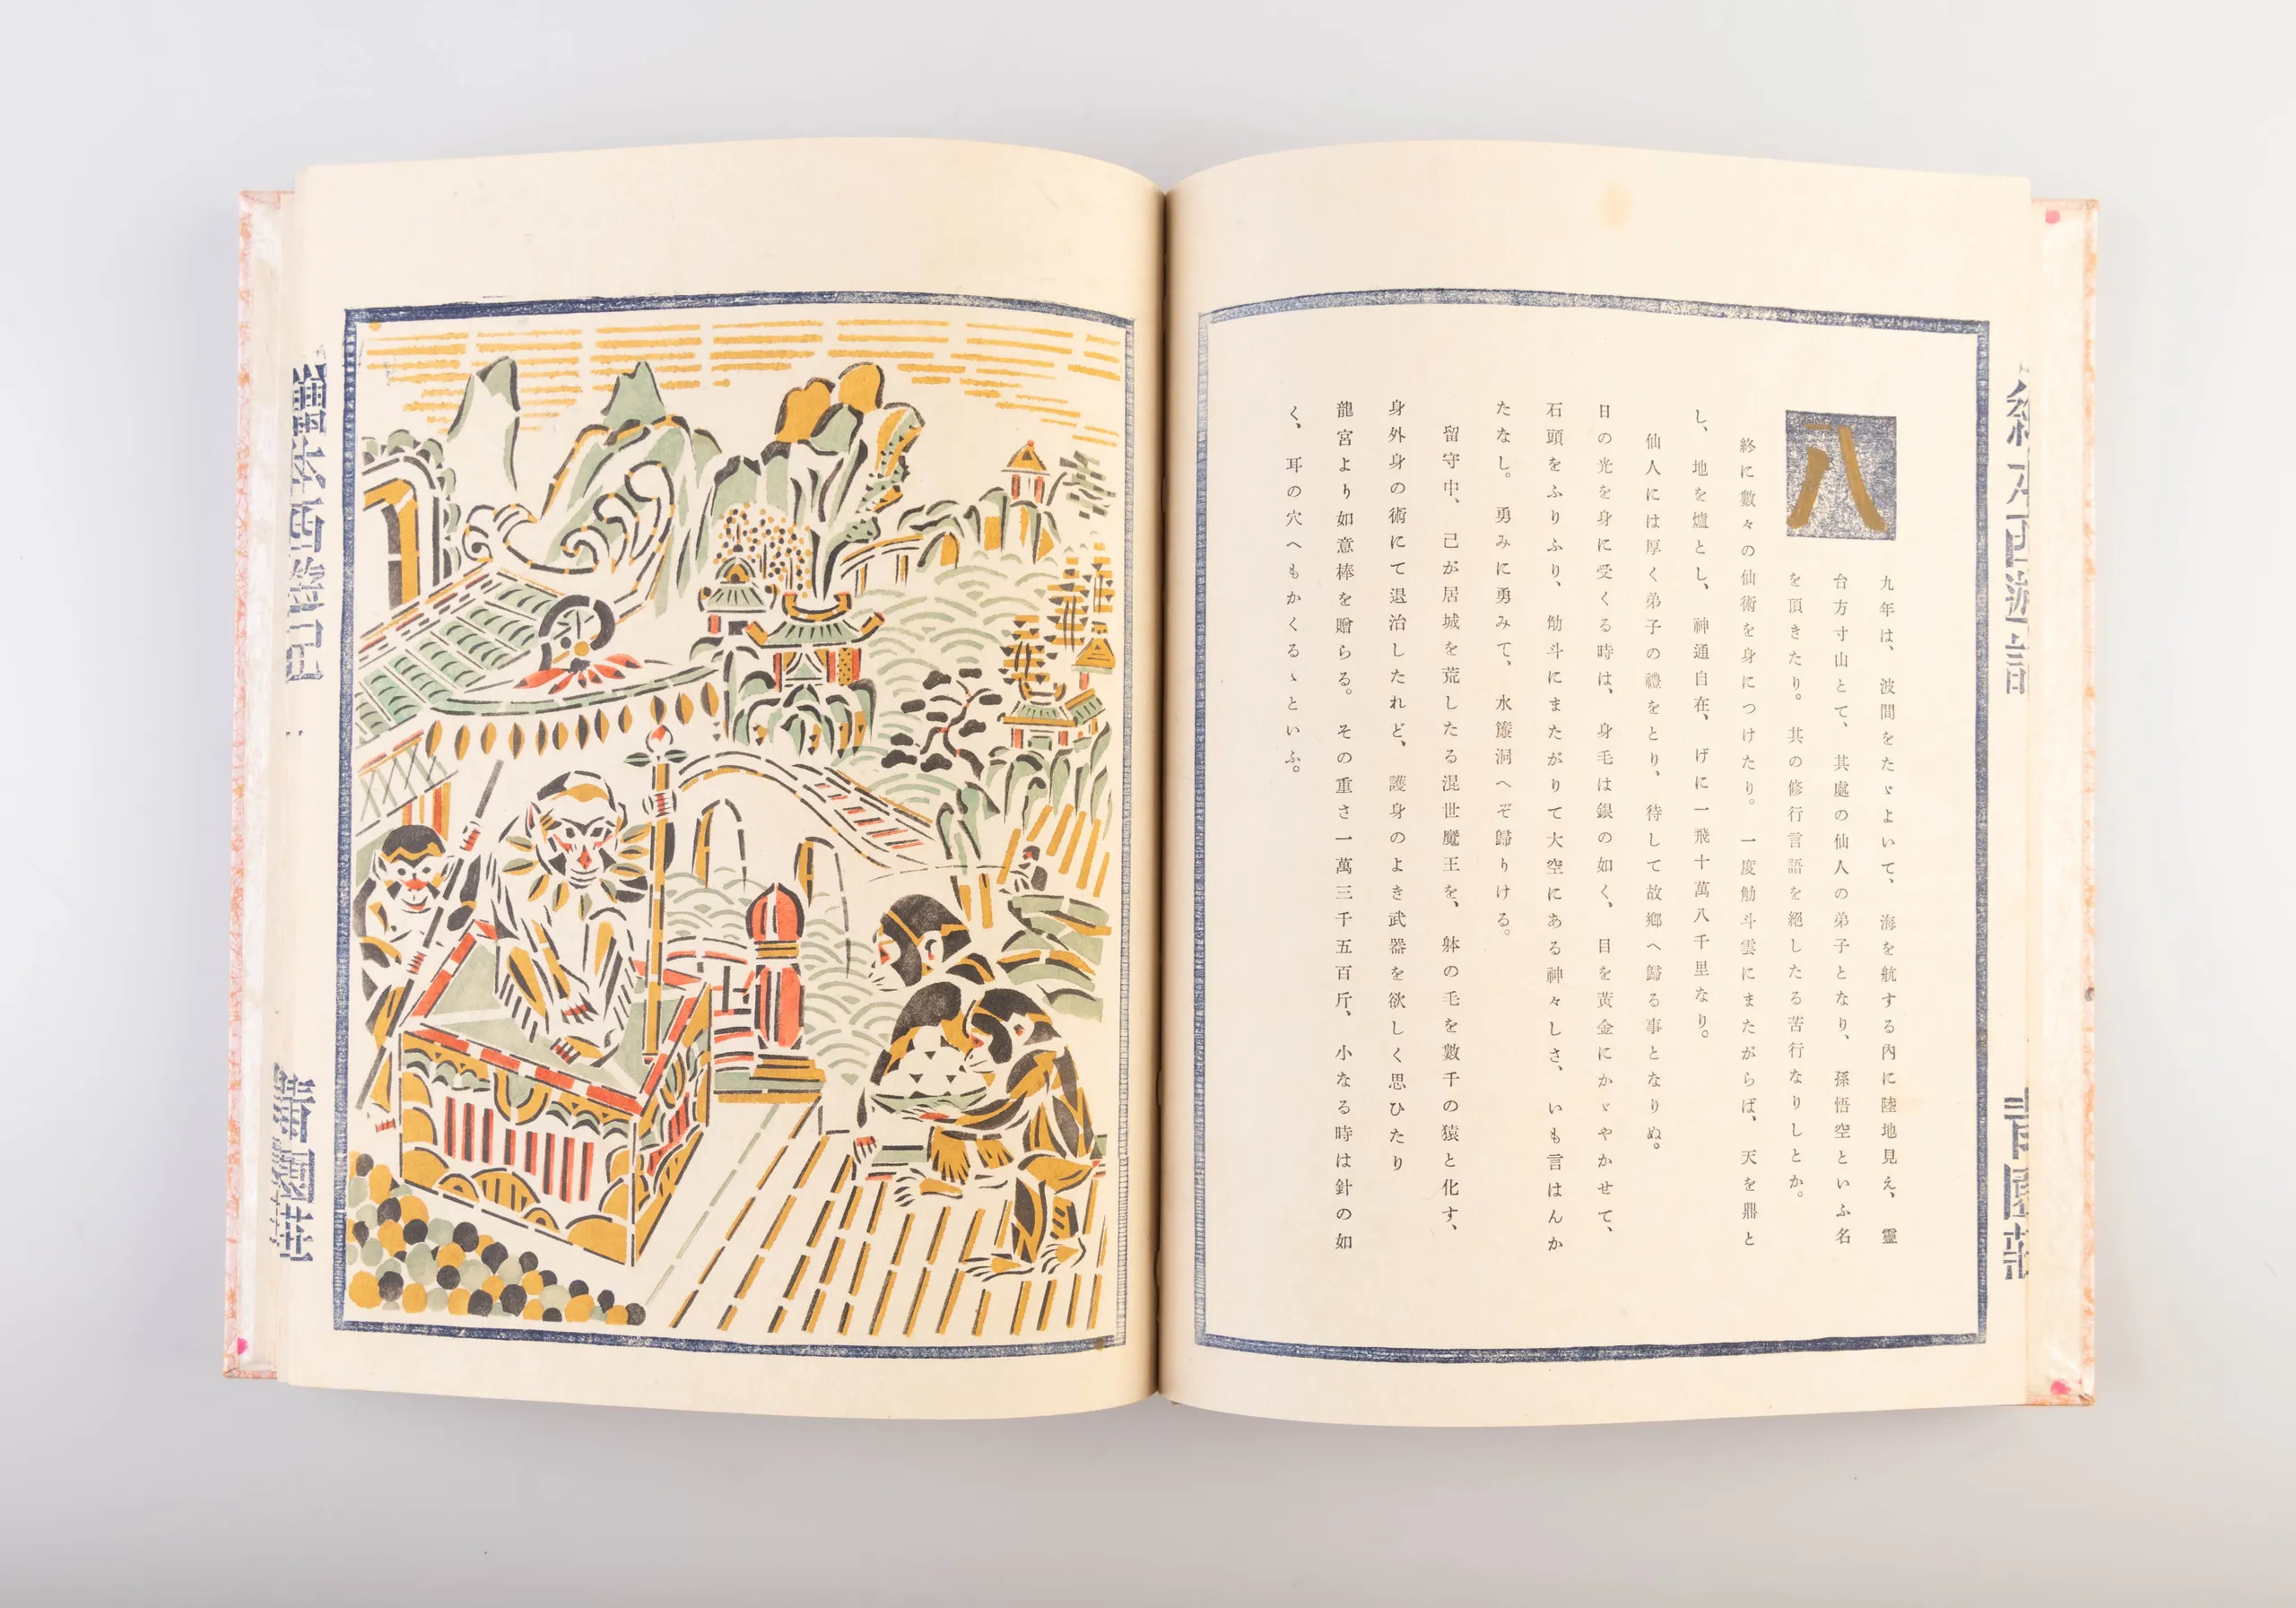 八
九年は、波間をたゞよいて、海を航する內に陸地見え、靈
台方寸山とて、其處の仙人の弟子となり、孫悟空といふ名
を頂きたり。其の修行言語を絕したる苦行なりしとか。
終に數々の仙術を身につけたり。一度觔斗雲にまたがらば、天を鼎と
し、地を爐とし、神通自在、げに一飛十萬八千里なり。
仙人には厚く弟子の禮をとり、待して故鄕へ歸る事となりぬ。
日の光を身に受くる時は、身毛は銀の如く、目を黃金にかゞやかせて、
石頭をふりふり、觔斗にまたがりて大空にある神々しさ、いも言はんか
たなし。勇みに勇みて、水簾洞へぞ歸りける。
留守中、己が居城を荒したる混世魔王を、躰の毛を數千の猿と化す、
身外身の術にて退治したれど、護身のよき武器を欲しく思ひたり
龍宮より如意棒を贈らる。その重さ一萬三千五百斤、小なる時は針の如
く、耳の穴へもかくるゝといふ。
繪本西遊記